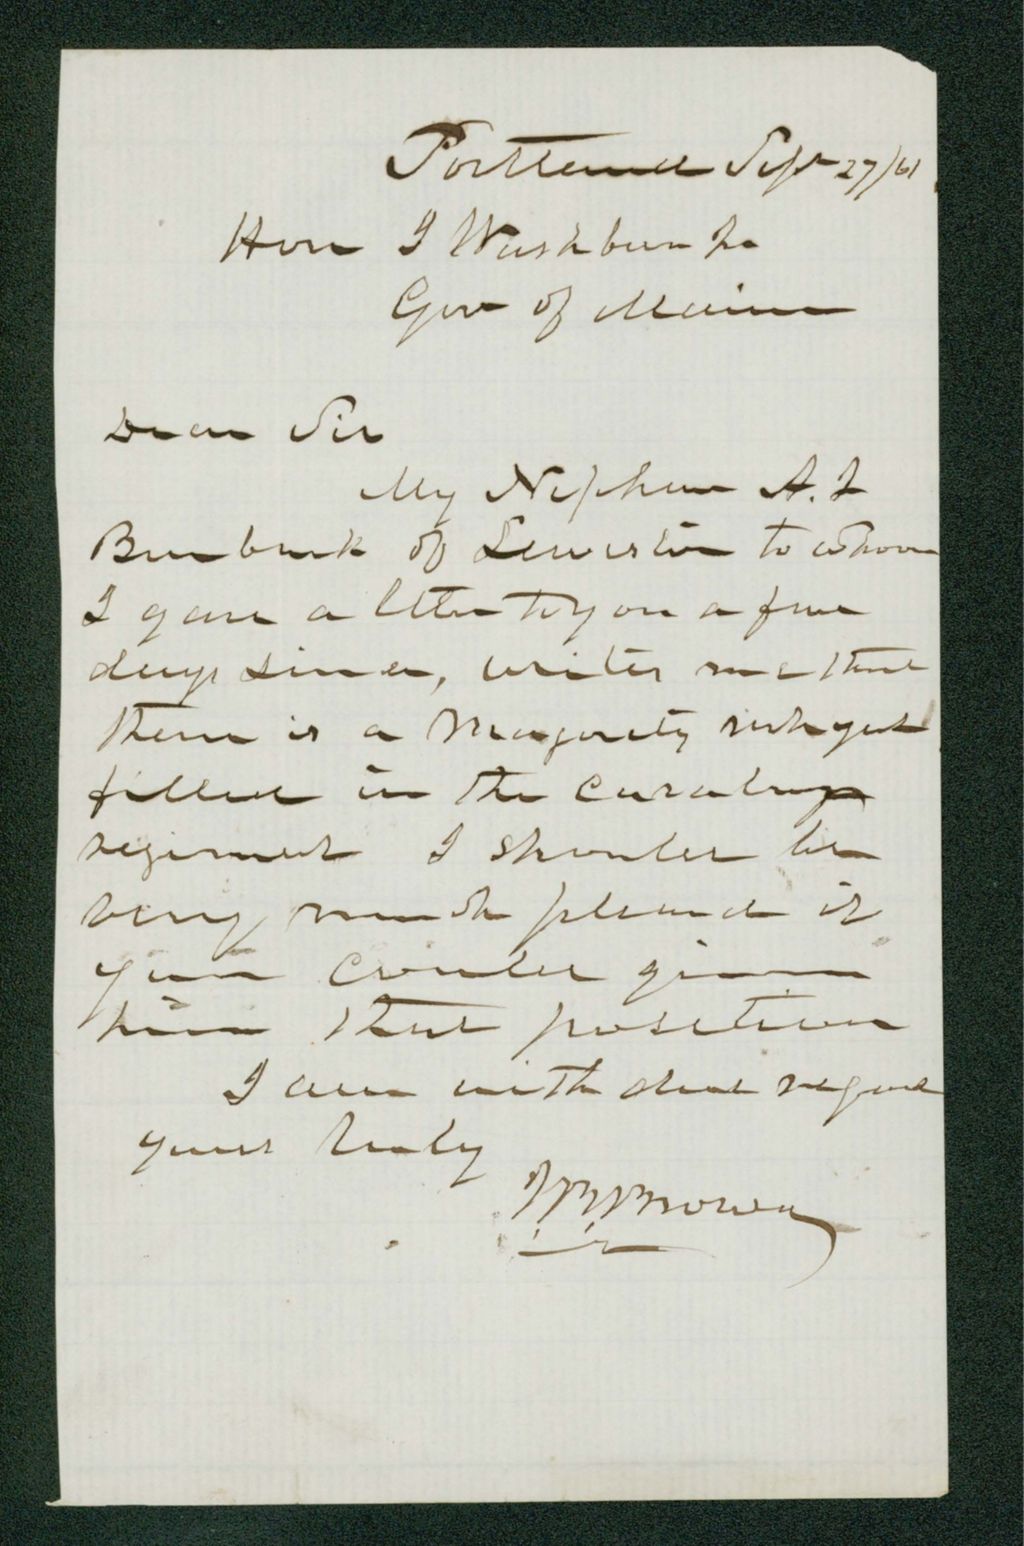 Portland Sept 27/61
Hon I Washburn Jr
Gov of Maine
Dear Sir
My Nephew A. I
Burbank of Lewiston to whom
I gave a letter to you a few
days since, writes me that
there is a Majority not yet
filled in the Cavalry
regiment I should be
very much pleased if
you could give
him that position
I am with due regard
yours truly
Brown